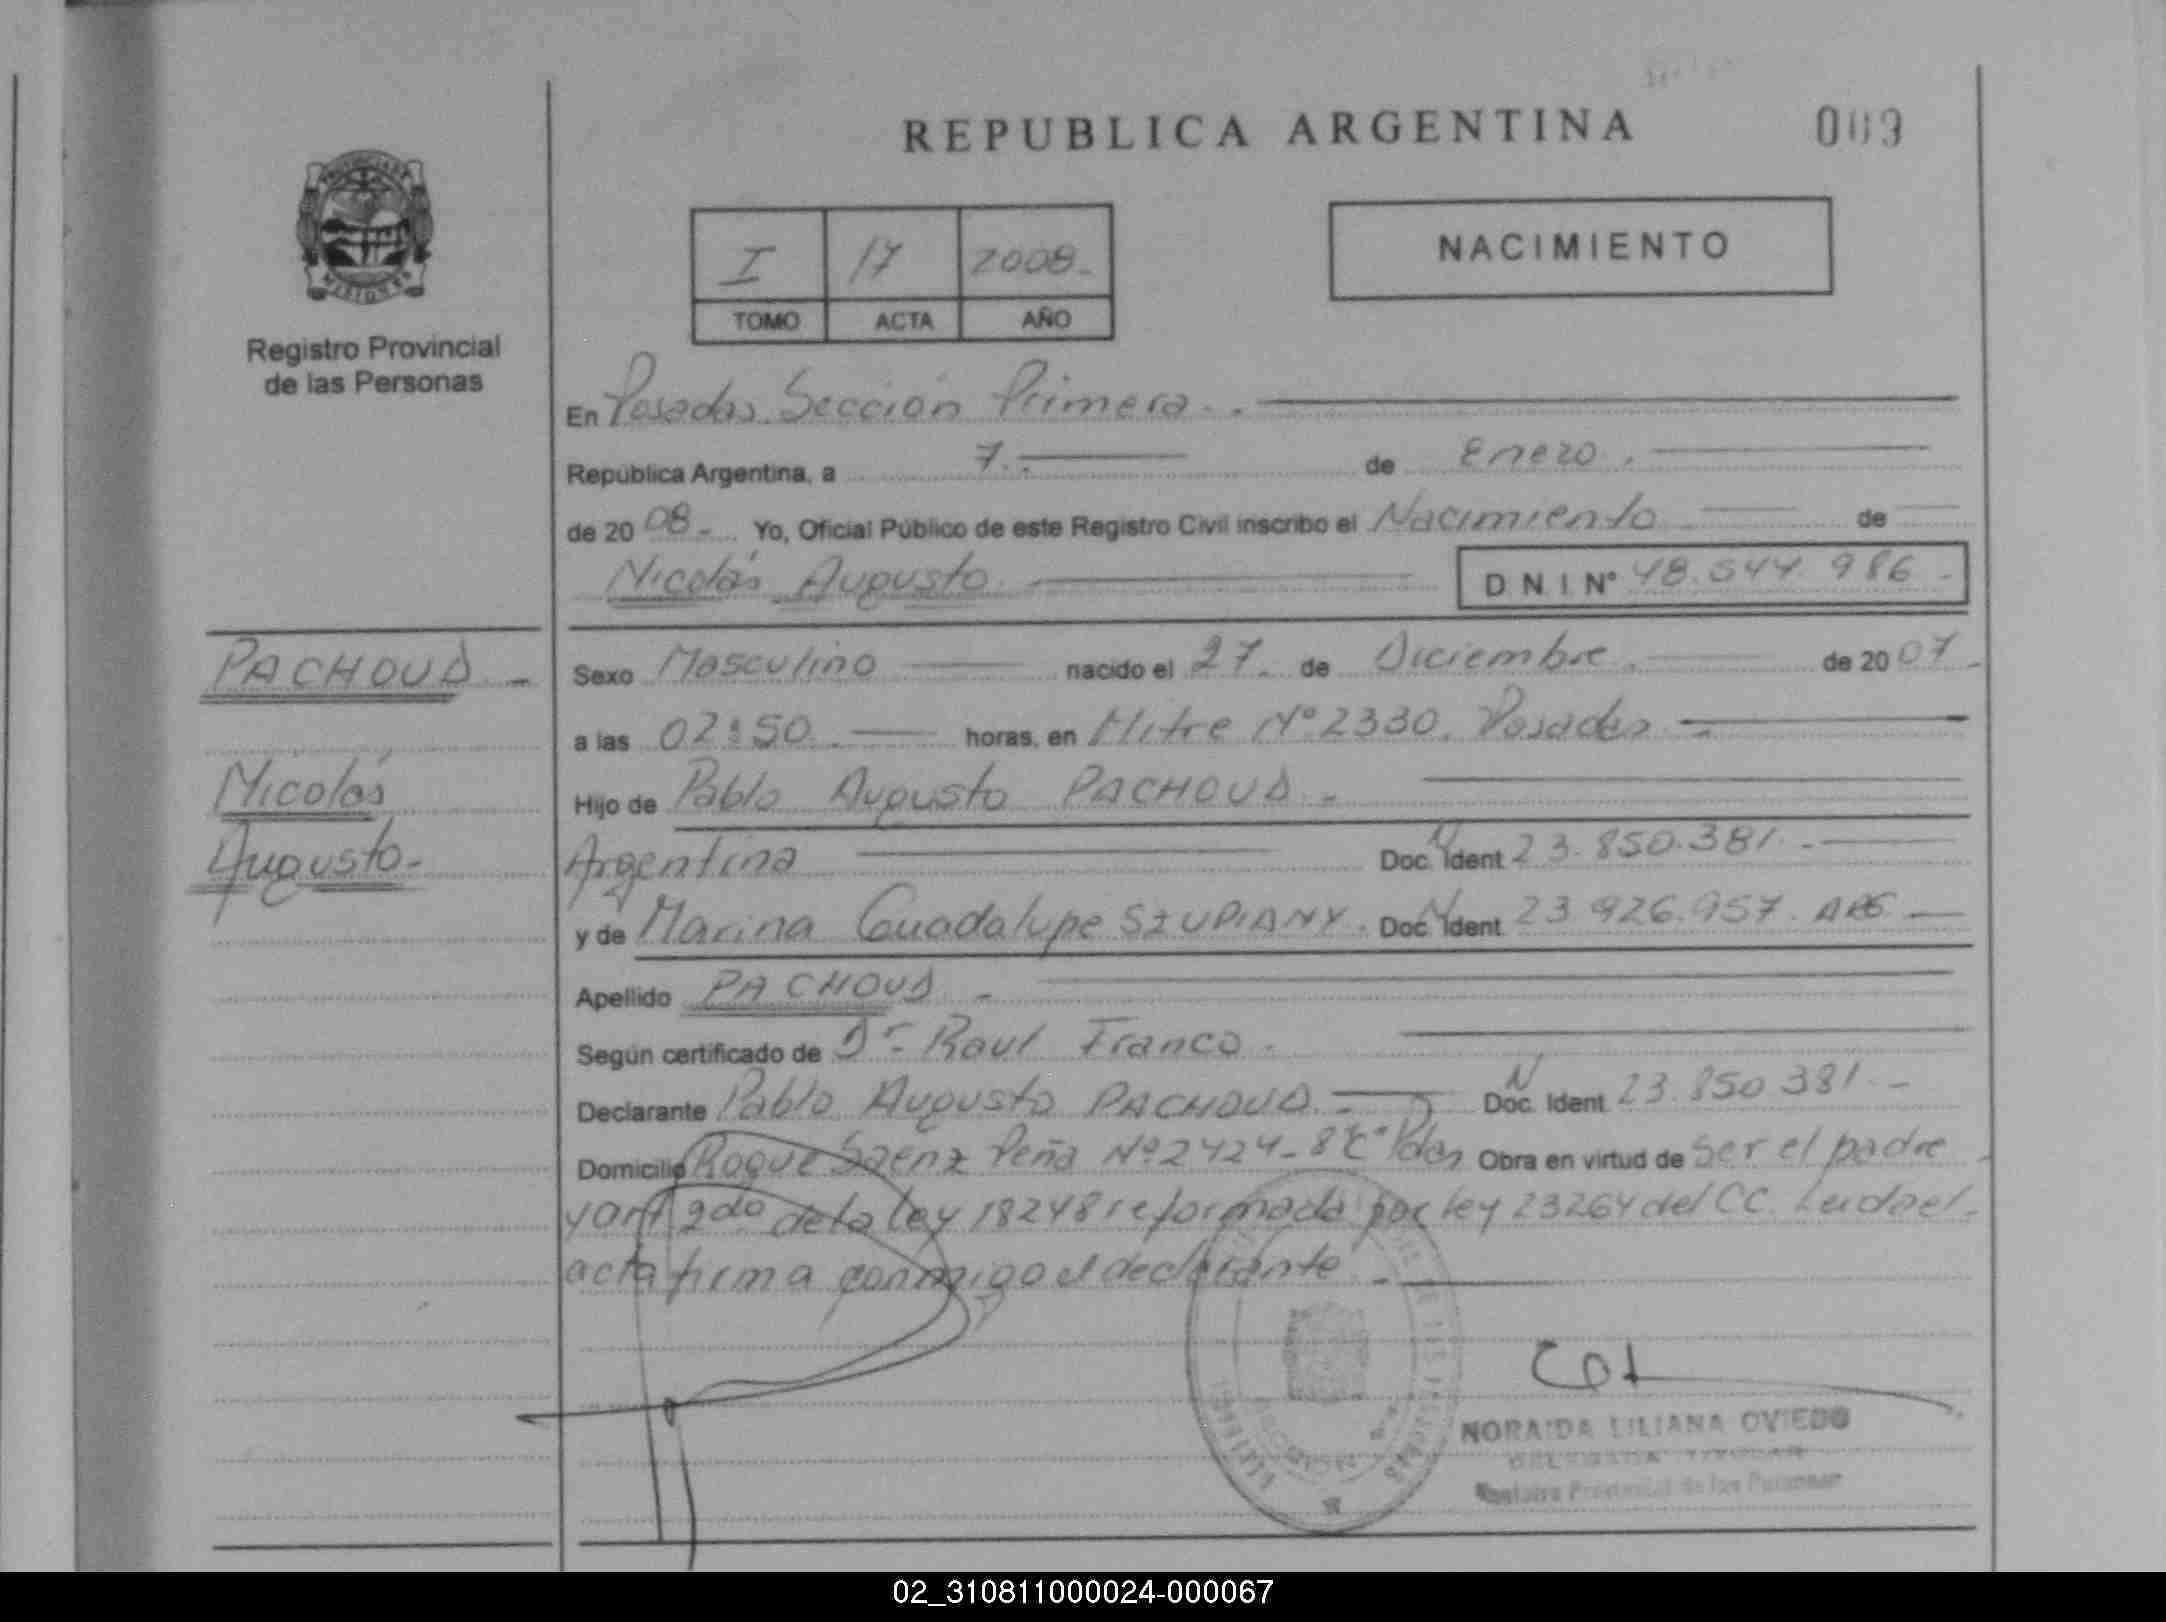 REPUBLICA ARGENTINA
009
PROVINCIA DE
MISIONES
Registro Provincial
de las Personas
I 17 2008.-
TOMO ACTA AÑO
NACIMIENTO
En Posadas. Sección Primera.-
República Argentina, a 7.- de Enero.
de 20 08.- Yo, Oficial Público de este Registro Civil inscribo el Nacimiento de
Nicolás Augusto. D N. I. N° 48.544.986.-
PACHOUD.-
Nicolás
Augusto.-
Sexo Masculino nacido el 27. de Diciembre. de 20 07.-
a las 02:50. horas, en Mitre N° 2330. Posadas.-
Hijo de Pablo Augusto PACHOUD.-
Argentina Doc. N Ident. 23.850.381.-
y de Marina Guadalupe SZUPIANY. Doc. N Ident. 23 926.957. ARG.
Apellido PACHOUD.-
Según certificado de Dr. Raul Franco.
Declarante Pablo Augusto PACHOUD.- Doc. N Ident. 23.850 381.-
Domicilio Roque Saenz Peña N° 2424- 8° "C" Pdas Obra en virtud de Ser el padre
y art 2do de la ley 18248 reformada por ley 23264 del CC. Leida el
acta firma conmigo el declarante.-
NORAIDA LILIANA OVIEDO
DELEGADA TITULAR
Registro Provincial de las Personas
02_310811000024-000067